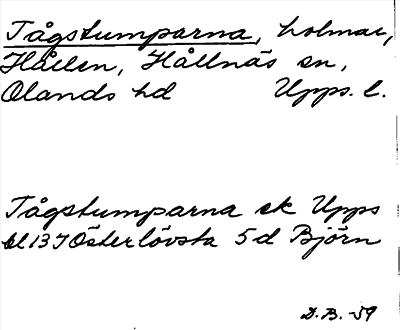 Tågstumparna, holmar,
Hållen, Hållnäs sn,
Olands hd Upps. l.
Tågstumparna ek Upps
bl 13 J Österlövsta 5d Björn
D.B. -59